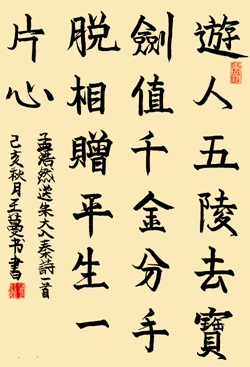 遊人五陵去寶
劍值千金分手
脫相贈平生一
片心
孟浩然送朱大入秦詩一首
己亥秋月王蔓书書